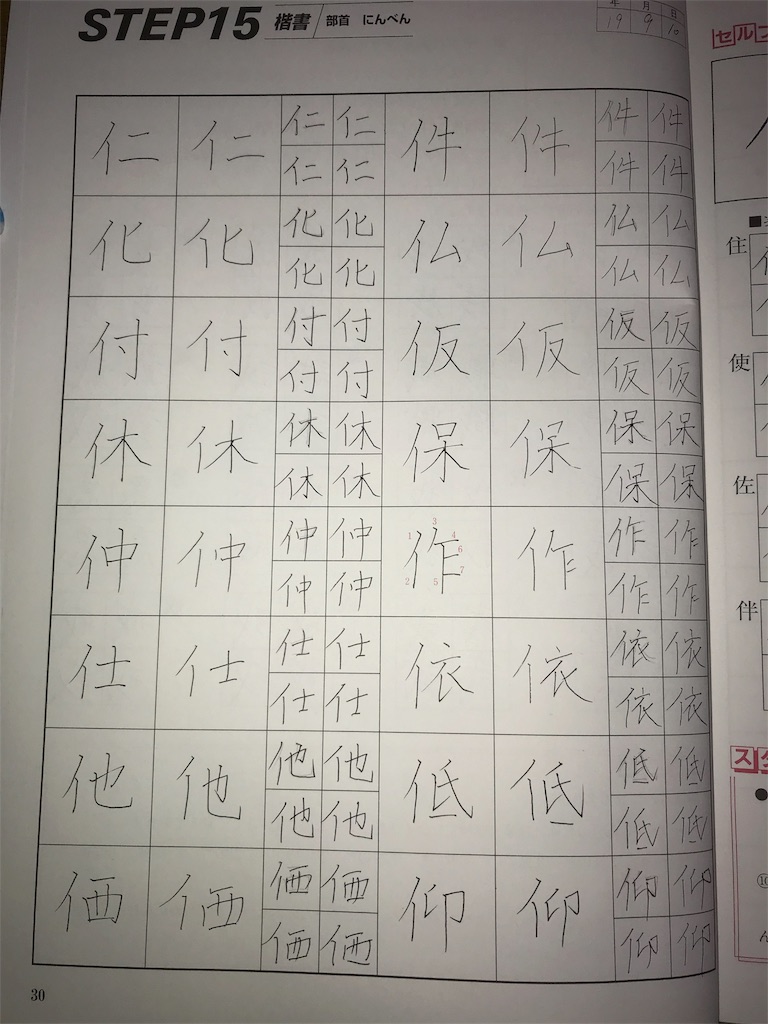 STEP15 楷書 部首 にんべん
年 月 日
19 9 10
仁 仁 仁 仁 件 件 件 件
仁 仁 件 件
化 化 化 化 仏 仏 仏 仏
化 化 仏 仏
付 付 付 付 仮 仮 仮 仮
付 付 仮 仮
休 休 休 休 保 保 保 保
休 休 保 保
仲 仲 仲 仲 作 作 作 作
仲 仲 作 作
1 2 3 4 5 6 7
仕 仕 仕 仕 依 依 依 依
仕 仕 依 依
他 他 他 他 低 低 低 低
他 他 低 低
価 価 価 価 仰 仰 仰 仰
価 価 仰 仰
30
セルフ
住
使
佐
伴
スタ
⑩